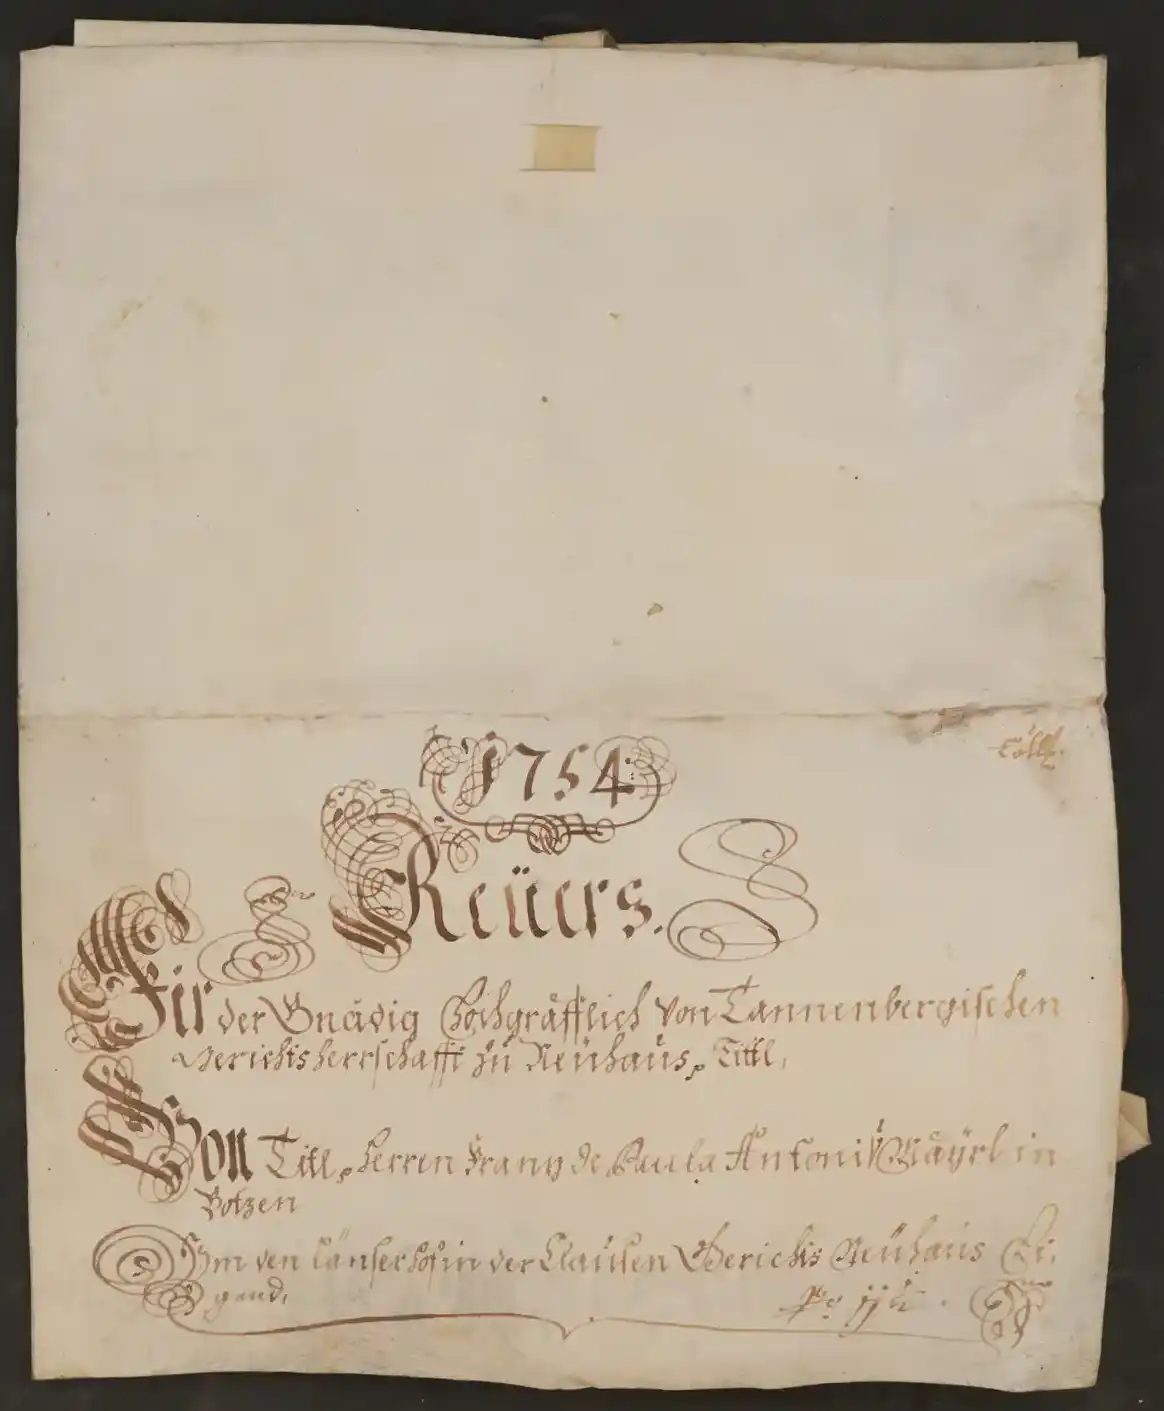 Cöll
1754
Reüers.
Fir der Gnädig Hochgräfflich von Tannenbergischen
Gerichtsherrschafft zu Neühaüs, Tittl,
Von Titl, Herren Franz de Paula Antoni Mäyrl in
Botzen
Um den länserhof in der Claüsen Gerichts Neühaüs
gend,